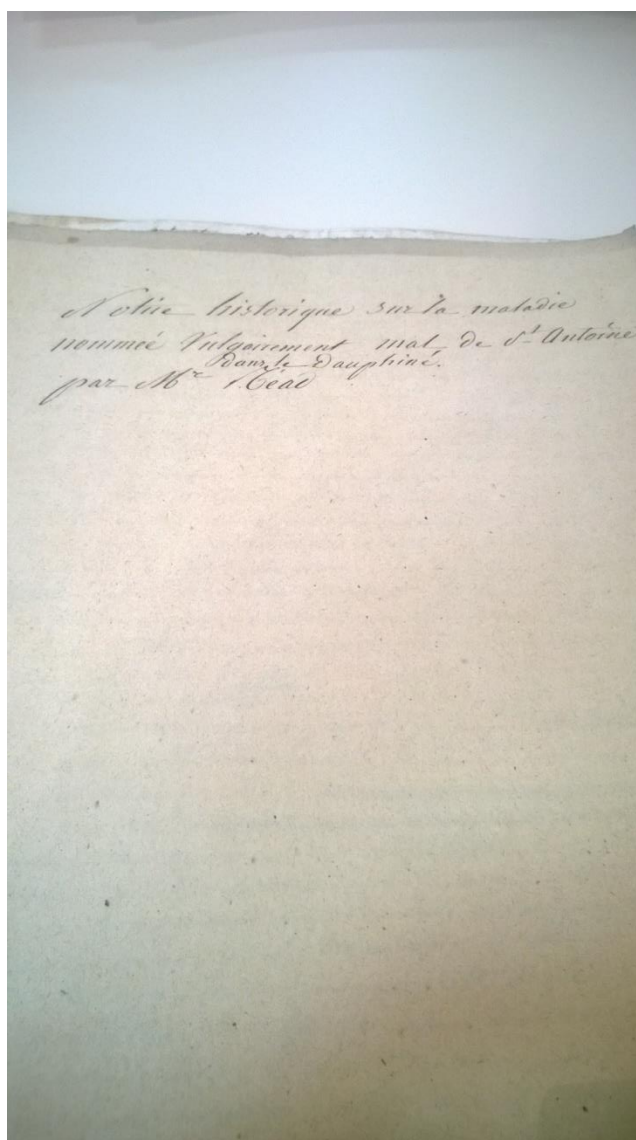 Notice historique sur la maladie
nommée Vulgairement mal de St Antoine
dans le Dauphiné.
par Mr